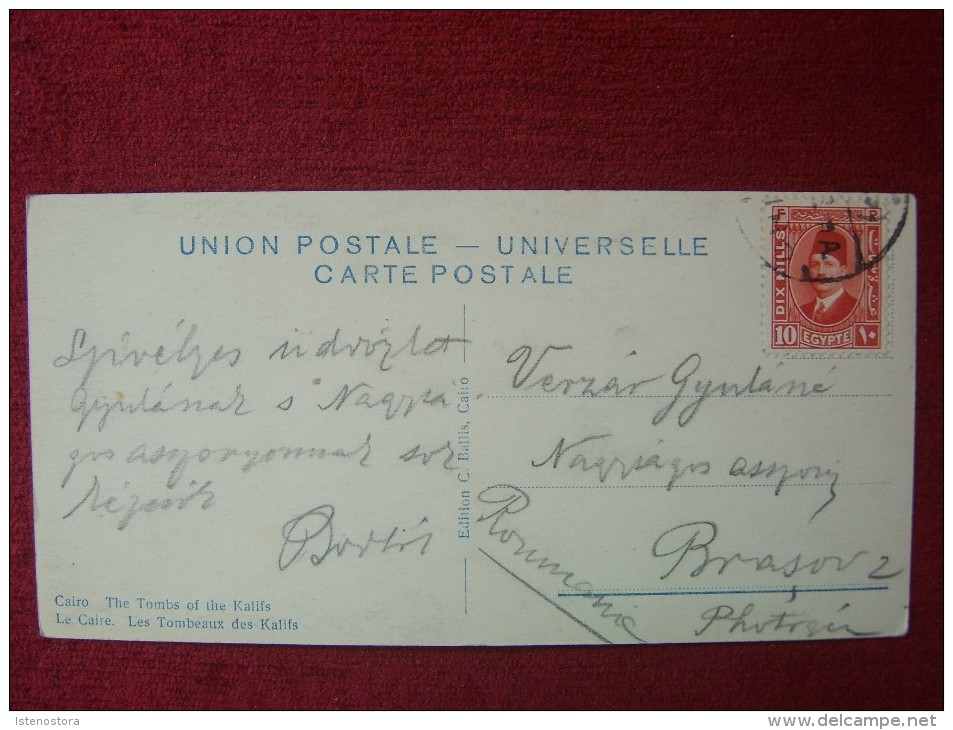 UNION POSTALE — UNIVERSELLE
CARTE POSTALE
F R
DIX MILLS
10 EGYPTE ١٠
Szívélyes üdvözlet
Gyulának s Nagysá-
gos asszonyomnak sok
kézcsók
Edition C. Ballis, Cairo
Verzár Gyuláné
Nagyságos asszony
Brașov 2
Roumania
Cairo The Tombs of the Kalifs
Le Caire. Les Tombeaux des Kalifs
Istenostora
www.delcampe.net